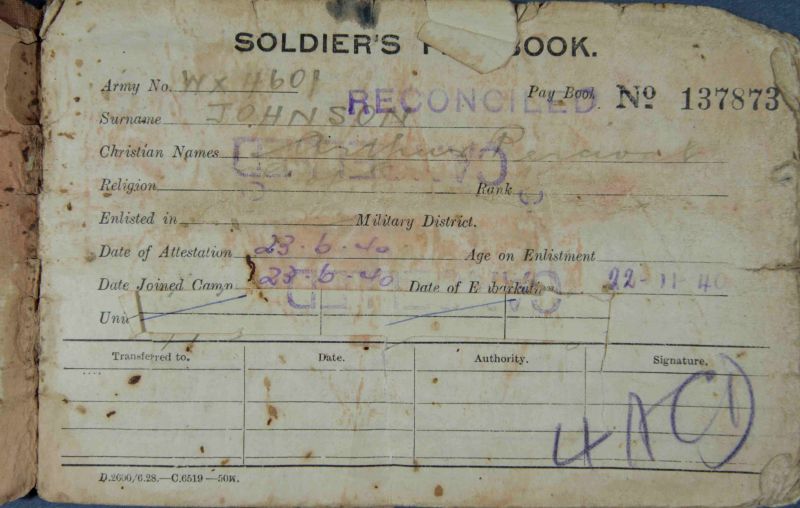 SOLDIER'S P BOOK.
Army No. WX 4601
Pay Book Nº 137873
RECONCILED
Surname JOHNSON
Christian Names Arthur Percival
CANCELLED
Religion Rank
Enlisted in Military District.
Date of Attestation 23·6·40 Age on Enlistment
Date Joined Camp 23·6·40 Date of Embarkation 22-11-40
CANCELLED
Unit
Transferred to. Date. Authority. Signature.
D.2600/6.28.—C.6519—50M.